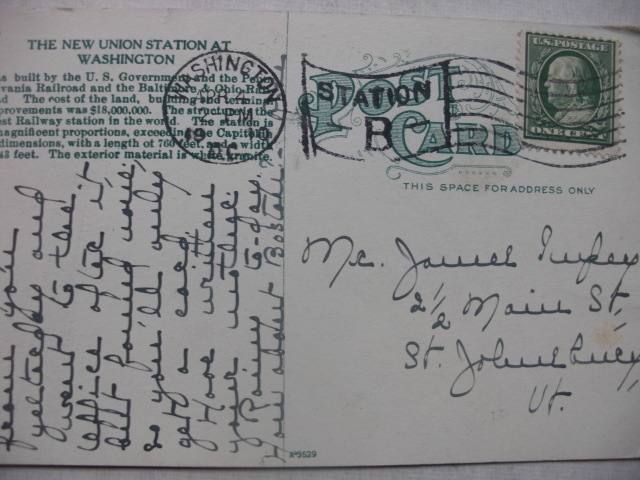 THE NEW UNION STATION AT
WASHINGTON
s built by the U. S. Government and the Penn
vania Railroad and the Baltimore & Ohio Rail
d The cost of the land, building and termin
provements was $18,000,000. The structure is the
est Railway station in the world. The station is
magnificent proportions, exceeding the Capitol
dimensions, with a length of 760 feet, and a width
43 feet. The exterior material is white granite.
WASHINGTON
19
STATION
B
POST
CARD
THIS SPACE FOR ADDRESS ONLY
U.S. POSTAGE
ONE CENT
from you
yesterday and
went to the
office after it
but found none,
so you'll only
get a card.
Have written
your mother
to-day.
Rainy
How about Boston.
Mr. James
2½ Main St,
St. Johnsbury,
Vt.
A-9529